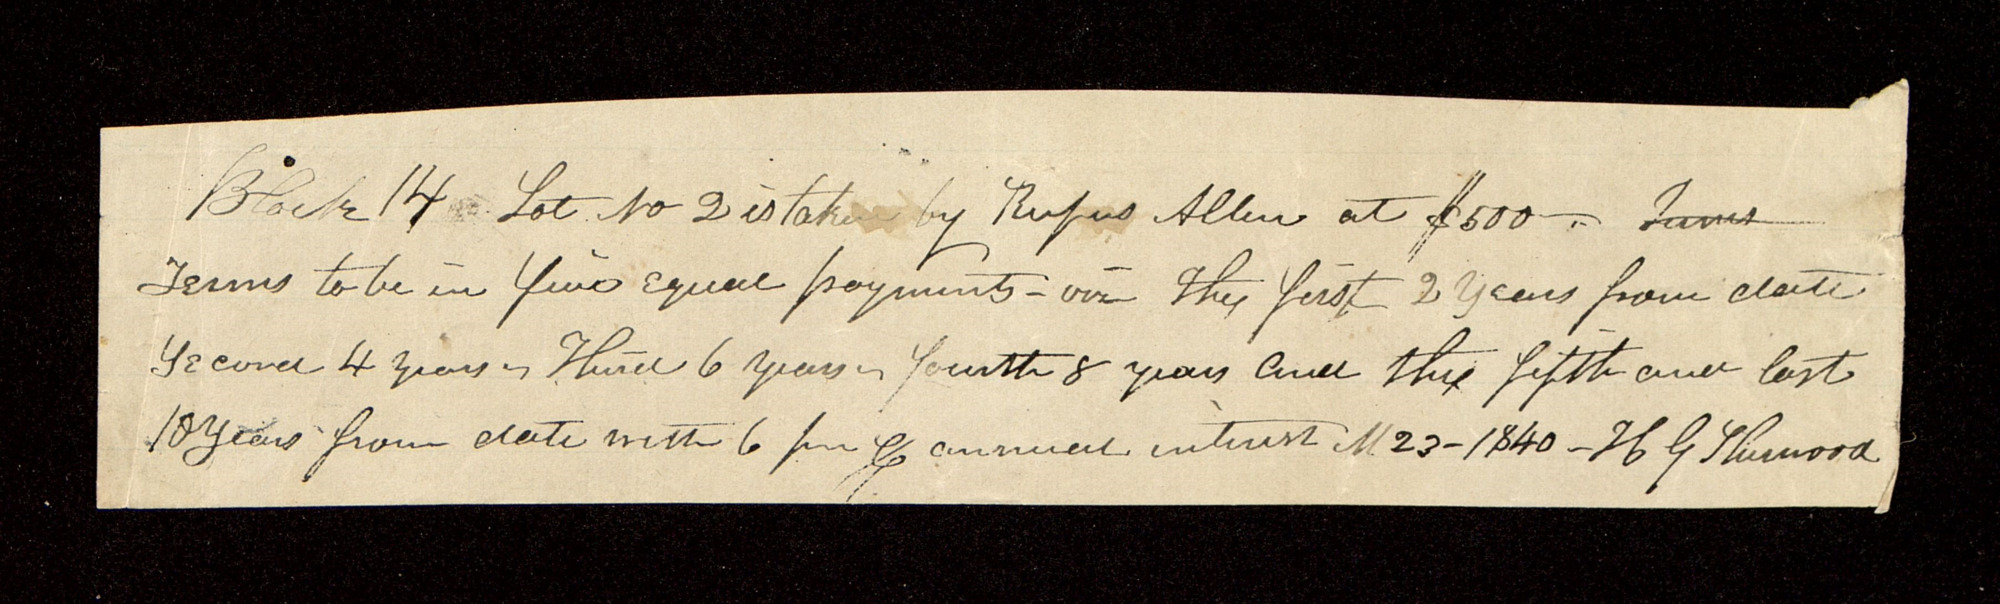 Block 14 Lot No 2 is taken by Rufus Allen at $500 – Terms
Terms to be in five equal payments – viz They first 2 Years from date
Second 4 years " Third 6 years " fourth 8 years and they fifth and last
10 Years from date with 6 per ct annual interest M 23 – 1840 – H G Sherwood